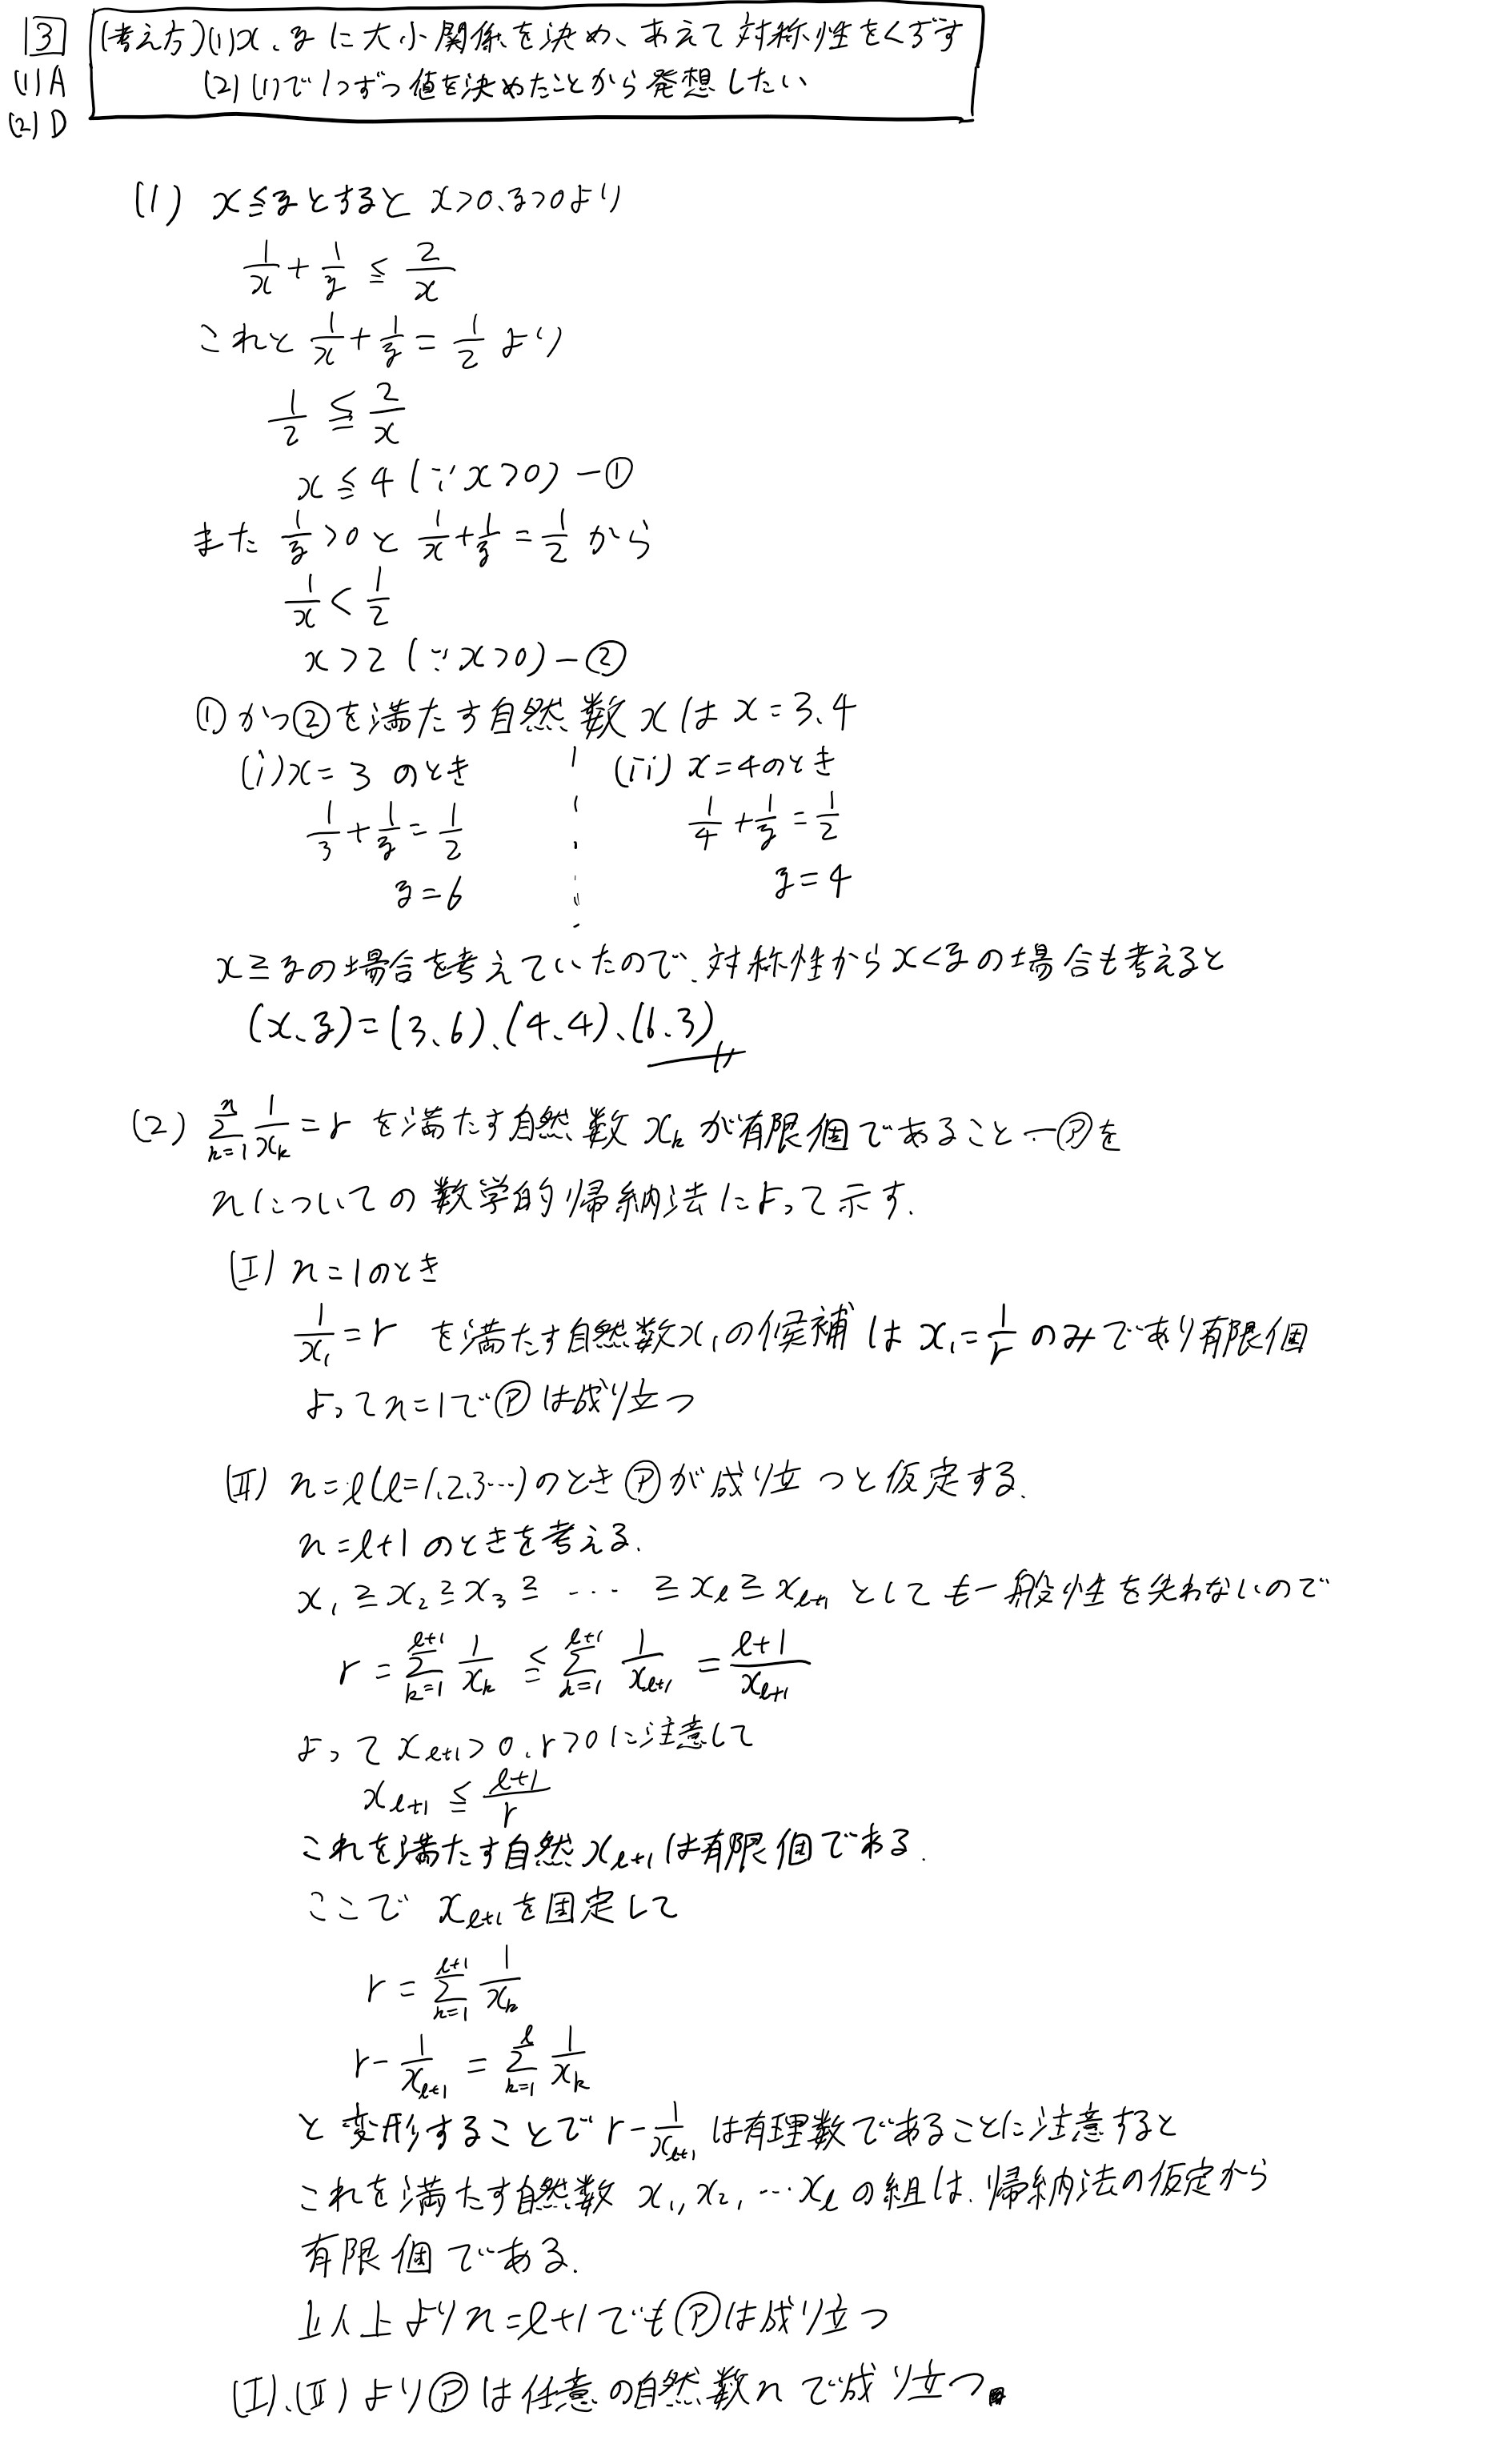 3 (考え方)(1)x、yに大小関係を決め、あえて対称性をくずす
(1)A (2)(1)で1つずつ値を決めたことから発想したい
(2)D
(1) x≦yとするとx>0、y>0より
1/x+1/y≦2/x
これと1/x+1/y=1/2より
1/2≦2/x
x≦4(∵x>0)−①
また1/y>0と1/x+1/y=1/2から
1/x<1/2
x>2(∵x>0)−②
①かつ②を満たす自然数xはx=3、4
(i)x=3のとき
1/3+1/y=1/2
y=6
(ii)x=4のとき
1/4+1/y=1/2
y=4
x≧yの場合を考えていたので、対称性からx<yの場合も考えると
(x、y)=(3、6)、(4、4)、(6、3)
(2) Σ[k=1→n] 1/x_k=r を満たす自然数x_kが有限個であること…Ⓟを
nについての数学的帰納法によって示す.
(Ⅰ) n=1のとき
1/x_1=r を満たす自然数x_1の候補はx_1=1/rのみであり有限個
よってn=1でⓅは成り立つ
(Ⅱ) n=ℓ(ℓ=1,2,3…)のときⓅが成り立つと仮定する.
n=ℓ+1のときを考える.
x_1≧x_2≧x_3≧…≧x_ℓ≧x_{ℓ+1}としても一般性を失わないので
r=Σ[k=1→ℓ+1] 1/x_k≦Σ[k=1→ℓ+1] 1/x_{ℓ+1}=(ℓ+1)/x_{ℓ+1}
よってx_{ℓ+1}>0、r>0に注意して
x_{ℓ+1}≦(ℓ+1)/r
これを満たす自然x_{ℓ+1}は有限個である.
ここで x_{ℓ+1}を固定して
r=Σ[k=1→ℓ+1] 1/x_k
r−1/x_{ℓ+1}=Σ[k=1→ℓ] 1/x_k
と変形することでr−1/x_{ℓ+1}は有理数であることに注意すると
これを満たす自然数 x_1,x_2,…x_ℓの組は、帰納法の仮定から
有限個である.
以上よりn=ℓ+1でもⓅは成り立つ
(Ⅰ)、(Ⅱ)よりⓅは任意の自然数nで成り立つ。